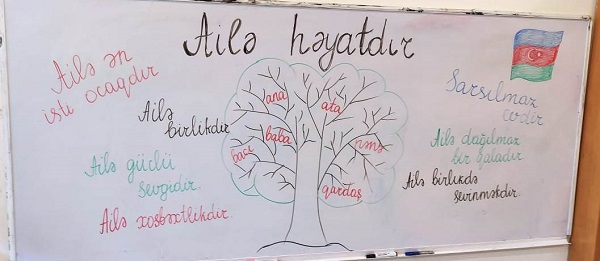 Ailə həyatdır
Ailə ən
isti ocaqdır
Ailə
birlikdir
Ailə güclü
sevgidir.
Ailə xoşbəxtlikdir.
ana
ata
baba
nənə
bacı
qardaş
Sarsılmaz
evdir
Ailə dağılmaz
bir qaladır.
Ailə birlikdə
sevinməkdir.